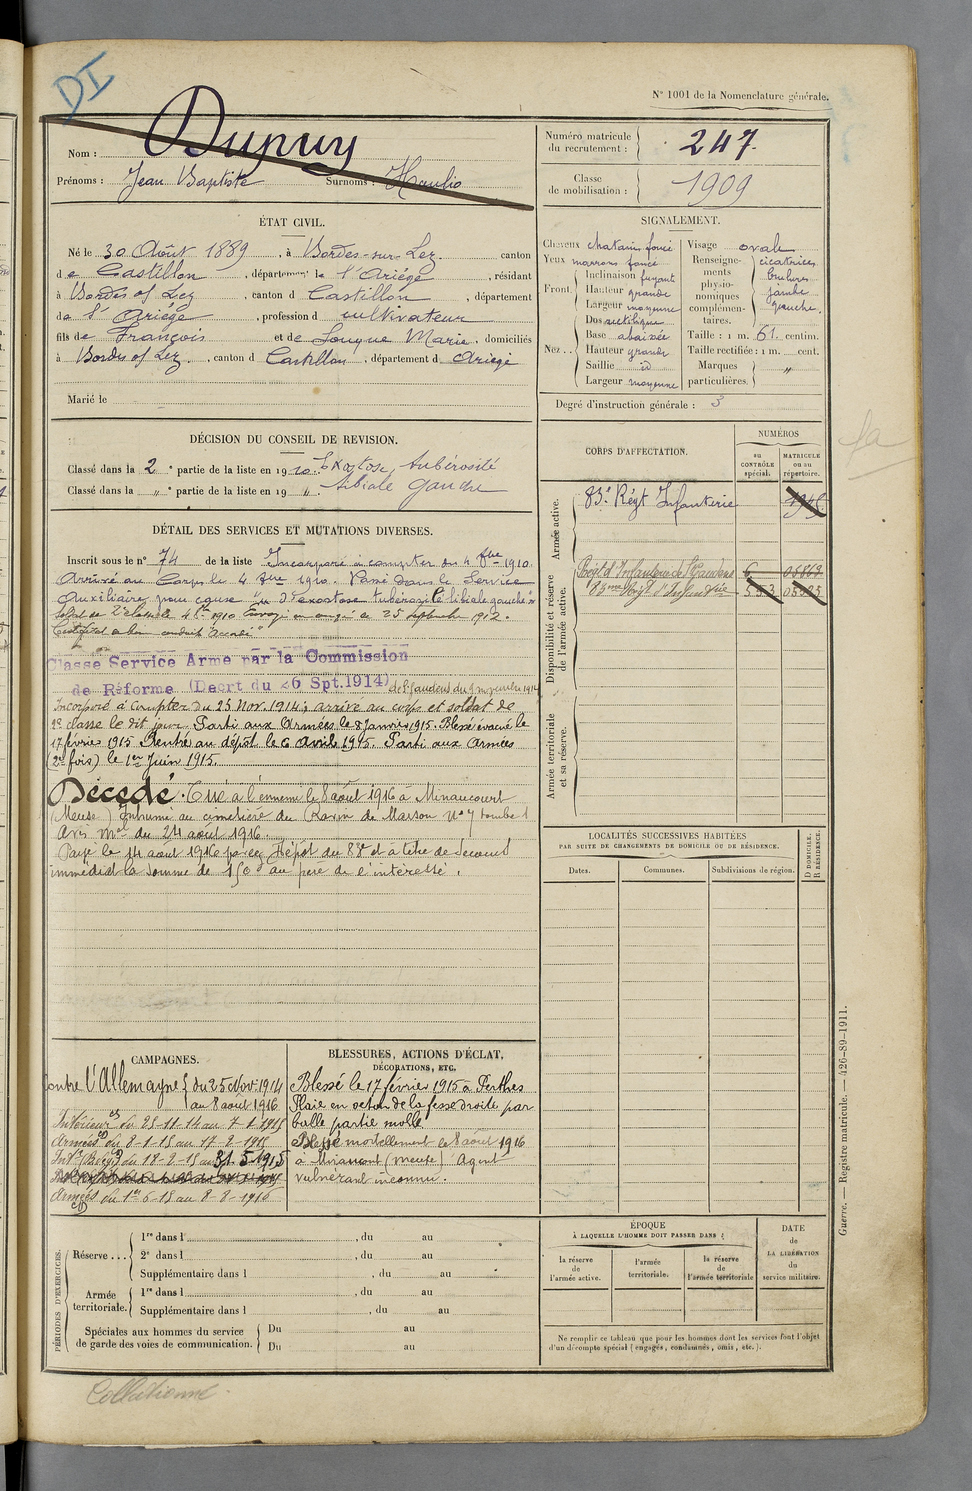 DI
N° 1001 de la Nomenclature générale.
Nom : Dupuy
Prénoms : Jean Baptiste Surnoms :
Numéro matricule du recrutement : 247.
Classe de mobilisation : 1909
ÉTAT CIVIL.
Né le 30 Août 1889, à Bordes-sur-Lez. canton
de Castillon, département de l'Ariége, résidant
à Bordes s/ Lez, canton d Castillon, département
de l'Ariége, profession d cultivateur
fils de François et de Souque Marie, domiciliés
à Bordes s/ Lez., canton d Castillon, département d Ariège
Marié le
SIGNALEMENT.
Cheveux chatain foncé
Yeux marrons foncé
Front. Inclinaison fuyant
Hauteur grande
Largeur moyenne
Nez.. Dos rectiligne
Base abaissée
Hauteur grande
Saillie id
Largeur moyenne
Visage ovale
Renseignements physionomiques complémentaires. cicatrices brulures jambe gauche.
Taille : 1 m. 61. centim.
Taille rectifiée : 1 m. cent.
Marques particulières. "
Degré d'instruction générale : 3
DÉCISION DU CONSEIL DE REVISION.
Classé dans la 2e partie de la liste en 1910. Exostose tubérosité
Classé dans la " e partie de la liste en 19 ". tibiale gauche
CORPS D'AFFECTATION.
NUMÉROS
au CONTRÔLE spécial.
MATRICULE ou au répertoire.
Armée active.
83e Régt Infanterie
Disponibilité et réserve de l'armée active.
Régt d'Infanterie de St Gaudens 6 05869
83ème Régt d'Infanterie
Armée territoriale et sa réserve.
DÉTAIL DES SERVICES ET MUTATIONS DIVERSES.
Inscrit sous le n° 74 de la liste Incorporé à compter du 4 8bre 1910.
Arrivé au Corps le 4 8bre 1910. Passé dans le Service
Auxiliaire pour cause "d'exostose tubérosité tibiale gauche"
Soldat de 2e classe le 4 8bre 1910 Envoyé en congé le 25 septembre 1912.
Certificat de bonne conduite "Accordé"
Classé Service Armé par la Commission
de Réforme (Décrt du 26 Spt. 1914) de St Gaudens du 9 novembre 1914
Incorporé à compter du 25 Nov. 1914; arrivé au corps et soldat de
2e classe le dit jour. Parti aux Armées le 8 Janvier 1915. Blessé évacué le
17 février 1915 Rentré au dépôt le 6 Avril 1915. Parti aux Armées
(2e fois) le 1er Juin 1915.
Décédé. Tué à l'ennemi le 8 août 1916 à Minaucourt
(Meuse) Inhumé au cimetière du Ravin de Marson n° 7 tombe 1
Avis mel du 24 août 1916.
Payé le 14 août 1916 par le Dépôt du 83e à titre de secours
immédiat la somme de 150 f au père de l'intéressé.
LOCALITÉS SUCCESSIVES HABITÉES
PAR SUITE DE CHANGEMENTS DE DOMICILE OU DE RÉSIDENCE.
Dates. Communes. Subdivisions de région. D DOMICILE. R RÉSIDENCE.
CAMPAGNES.
Contre l'Allemagne du 25 Nov. 1914
au 8 août 1916
Intérieur du 25-11-14 au 7-1-1915
Armées du 8-1-15 au 17-2-1915
Intr (Blessé) du 18-2-15 au 31-5-1915
Armées du 1er-6-15 au 8-8-1916
BLESSURES, ACTIONS D'ÉCLAT, DÉCORATIONS, ETC.
Blessé le 17 février 1915 à Perthes
Plaie en séton de la fesse droite par
balle partie molle
Blessé mortellement le 8 août 1916
à (Meuse) Agent
vulnérant inconnu.
PÉRIODES D'EXERCICES.
Réserve ... 1re dans l , du au
2e dans l , du au
Supplémentaire dans l , du au
Armée territoriale. 1re dans l , du au
Supplémentaire dans l , du au
Spéciales aux hommes du service de garde des voies de communication. Du au
Du au
ÉPOQUE
À LAQUELLE L'HOMME DOIT PASSER DANS :
la réserve de l'armée active.
l'armée territoriale.
la réserve de l'armée territoriale
DATE DE LA LIBÉRATION du service militaire.
Ne remplir ce tableau que pour les hommes dont les services font l'objet
d'un décompte spécial (engagés, condamnés, omis, etc.).
Guerre. — Registre matricule. — 426-89-1911.
Collationné.